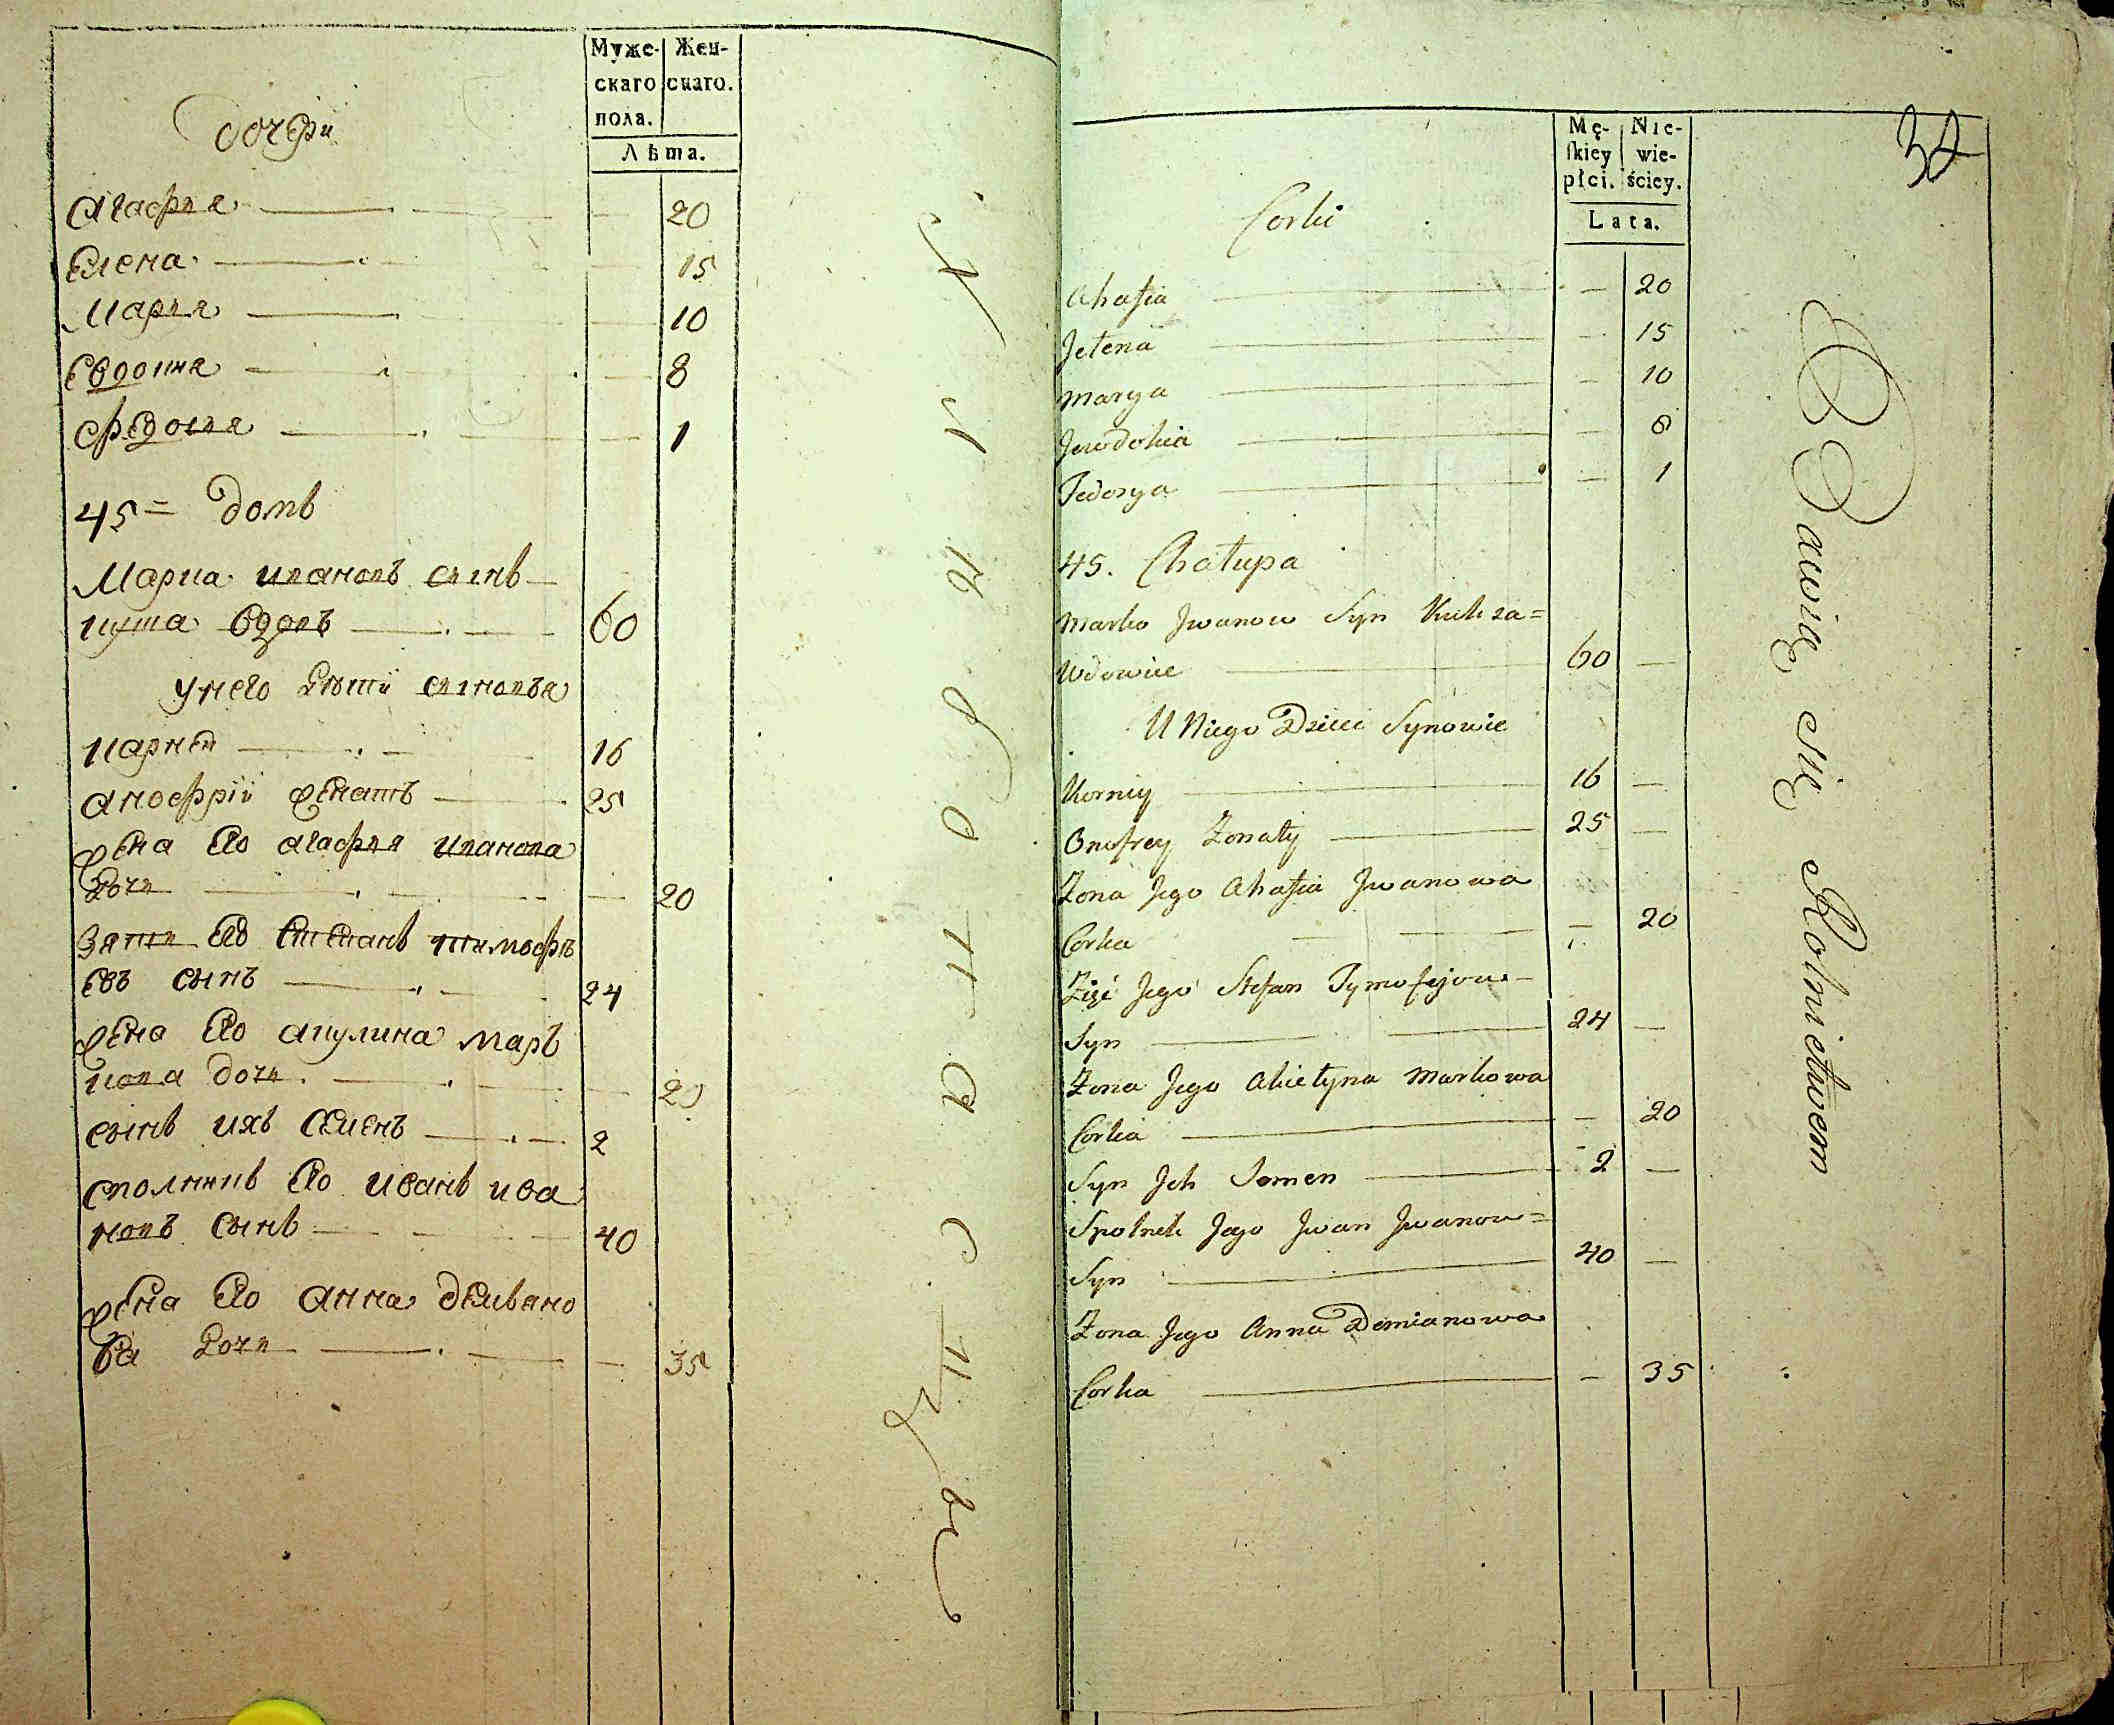 Муже- Жен-
скаго скаго.
пола.
Лѣта.
Дочери
Агафия 20
Елена 15
Мария 10
Евдокия 8
Федосия 1
45 = Домъ
Марка Ивановъ сынъ
куша вдовъ 60
у него дѣти сыновья
Карней 16
Анофрій женатъ 25
жена его Агафия Иванова
дочь 20
зять его Стефанъ Тимофѣ
евъ сынъ 24
жена его Акулина Марь
кова дочь 20
сынъ ихъ Семенъ 2
сполникъ его Иванъ Ива
новъ сынъ 40
жена его Анна Демьяно
ва дочь 35
Mę- Nie-
skiey wie-
płci. ściey.
Lata.
34
Corki
Ahafia 20
Jełena 15
Marya 10
Jewdokia 8
Fedosya 1
45. Chałupa
Marko Jwanow Syn Kuksza=
Wdowiec 60
U Niego Dzieci Synowie
Korniy 16
Onufrey Żonaty 25
Żona Jego Ahafia Jwanowa
Corka 20
Zięć Jego Stefan Tymofejow-
Syn 24
Żona Jego Akiełyna Markowa
Corka 20
Syn Jch Semen 2
Spolnik Jego Jwan Jwanow=
Syn 40
Żona Jego Anna Demianowa
Corka 35
Bawią się Rolnictwem